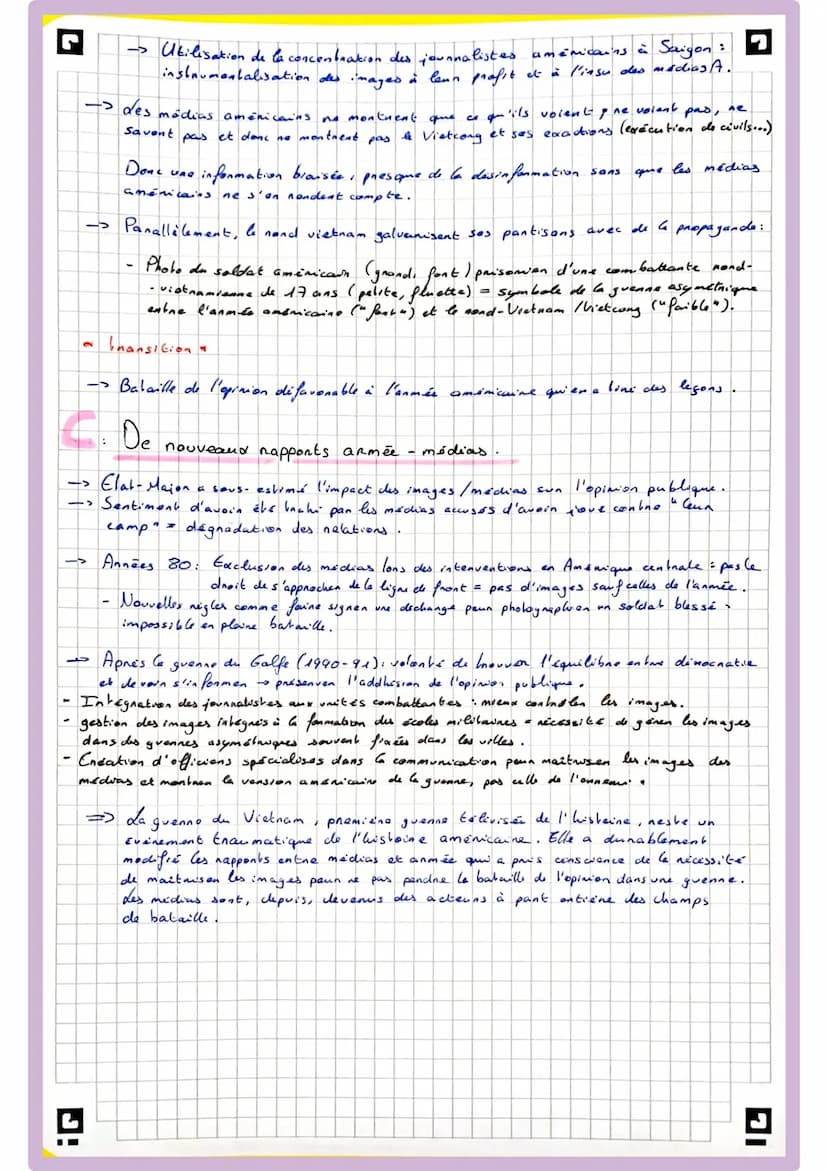 -> Utilisation de la concentration des journalistes américains à Saigon :
instrumentalisation des images à leur profit et à l'insu des médias A.
-> Les médias américains ne montrent que ce qu'ils voient ; ne voient pas, ne
savent pas et donc ne montrent pas le Vietcong et ses exactions (exécution de civils...)
Donc une information biaisée, presque de la desinformation sans que les médias
américains ne s'en rendent compte.
-> Parallèlement, le nord vietnam galvanisent ses partisans avec de la propagande :
- Photo du soldat américain (grand, fort) prisonnier d'une combattante nord-
-vietnamienne de 17 ans (petite, fluette) = symbole de la guerre asymétrique
entre l'armée américaine ("fort") et le nord-Vietnam / Vietcong ("faible").
* transition *
-> Bataille de l'opinion défavorable à l'armée américaine qui en a tiré des leçons.
C : De nouveaux rapports armée - médias.
-> Etat-Major a sous-estimé l'impact des images / médias sur l'opinion publique.
-> Sentiment d'avoir été trahi par les médias accusés d'avoir joué contre "leur
camp" = dégradation des relations.
-> Années 80 : Exclusion des médias lors des interventions en Amérique centrale : pas le
droit de s'approcher de la ligne de front = pas d'images sauf celles de l'armée.
- Nouvelles règles comme faire signer une décharge pour photographier un soldat blessé =
impossible en pleine bataille.
-> Après la guerre du Golfe (1990-91) : volonté de trouver l'équilibre entre démocratie
et devoir s'informer -> préserver l'addhésion de l'opinion publique.
- Intégration des journalistes aux unités combattantes : mieux contrôler les images.
- gestion des images intégrés à la formation des écoles militaires = nécessité de gérer les images
dans des guerres asymétriques souvent fixées dans les villes.
- Création d'officiers spécialisés dans la communication pour maitriser les images des
médias et montrer la version américaine de la guerre, pas celle de l'ennemi.
=> La guerre du Vietnam, première guerre télévisée de l'histoire, reste un
évènement traumatique de l'histoire américaine. Elle a durablement
modifié les rapports entre médias et armée qui a pris conscience de la nécessité
de maitriser les images pour ne pas perdre la bataille de l'opinion dans une guerre.
Les médias sont, depuis, devenus des acteurs à part entière des champs
de bataille.